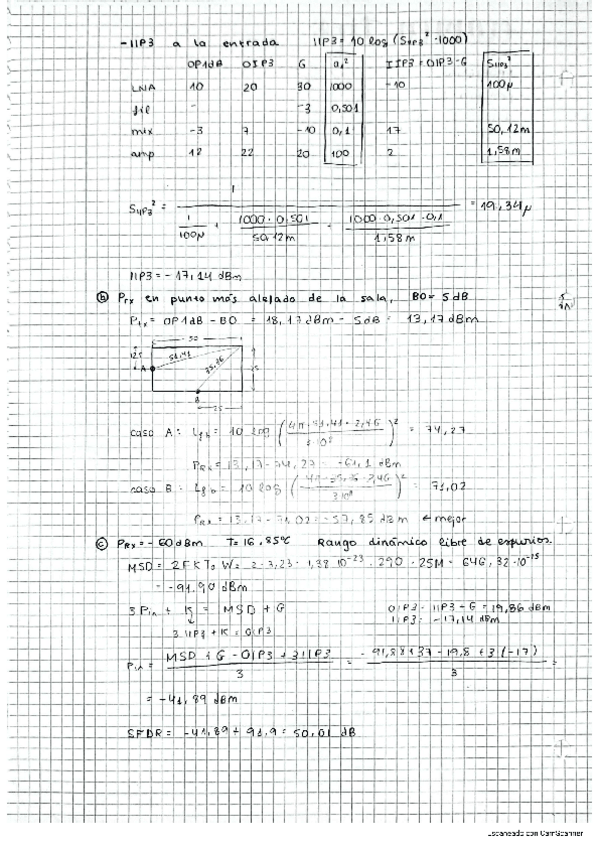 -IIP3 a la entrada IIP3 = 10 log (SIIP3² · 1000)
OP1dB OIP3 G a,² IIP3 = OIP3-G SIIP3²
LNA 10 20 30 1000 -10 100μ
fil - -3 0,501
mix -3 7 -10 0,1 17 50,12m
amp 12 22 20 100 2 1,58m
1
SIIP3² = = 19,34μ
1 1000 · 0,501 1000 · 0,501 · 0,1
100μ + 50,12m + 1,58m
IIP3 = -17,14 dBm
b) Prx en punto más alejado de la sala, BO = 5 dB
Ptx = OP1dB - BO = 18,17 dBm - 5 dB = 13,17 dBm
50
12,5 51,41
A 35,36 25
B
25
caso A: Lfb = 10 log (4π · 51,41 · 2,4G / 3·10⁸)² = 74,27
PRX = 13,17 - 74,27 = -61,1 dBm
caso B: Lfb = 10 log (4π · 35,36 · 2,4G / 3·10⁸)² = 71,02
PRX = 13,17 - 71,02 = -57,85 dBm ← mejor
c) PRX = -60 dBm T = 16,85ºC Rango dinámico libre de espurios.
MSD = 2FKT₀W = 2 · 3,23 · 1,38 · 10⁻²³ · 290 · 25M = 646,32 · 10⁻¹⁵
= -91,90 dBm
3 Pin + K = MSD + G OIP3 = IIP3 + G = 19,86 dBm
3·IIP3 + K = OIP3 IIP3 = -17,14 dBm
Pin = MSD + G - OIP3 + 3 IIP3 = -91,88 + 37 - 19,8 + 3(-17)
3 3
= -41,89 dBm
SFDR = -41,89 + 91,9 = 50,01 dB
Escaneado con CamScanner